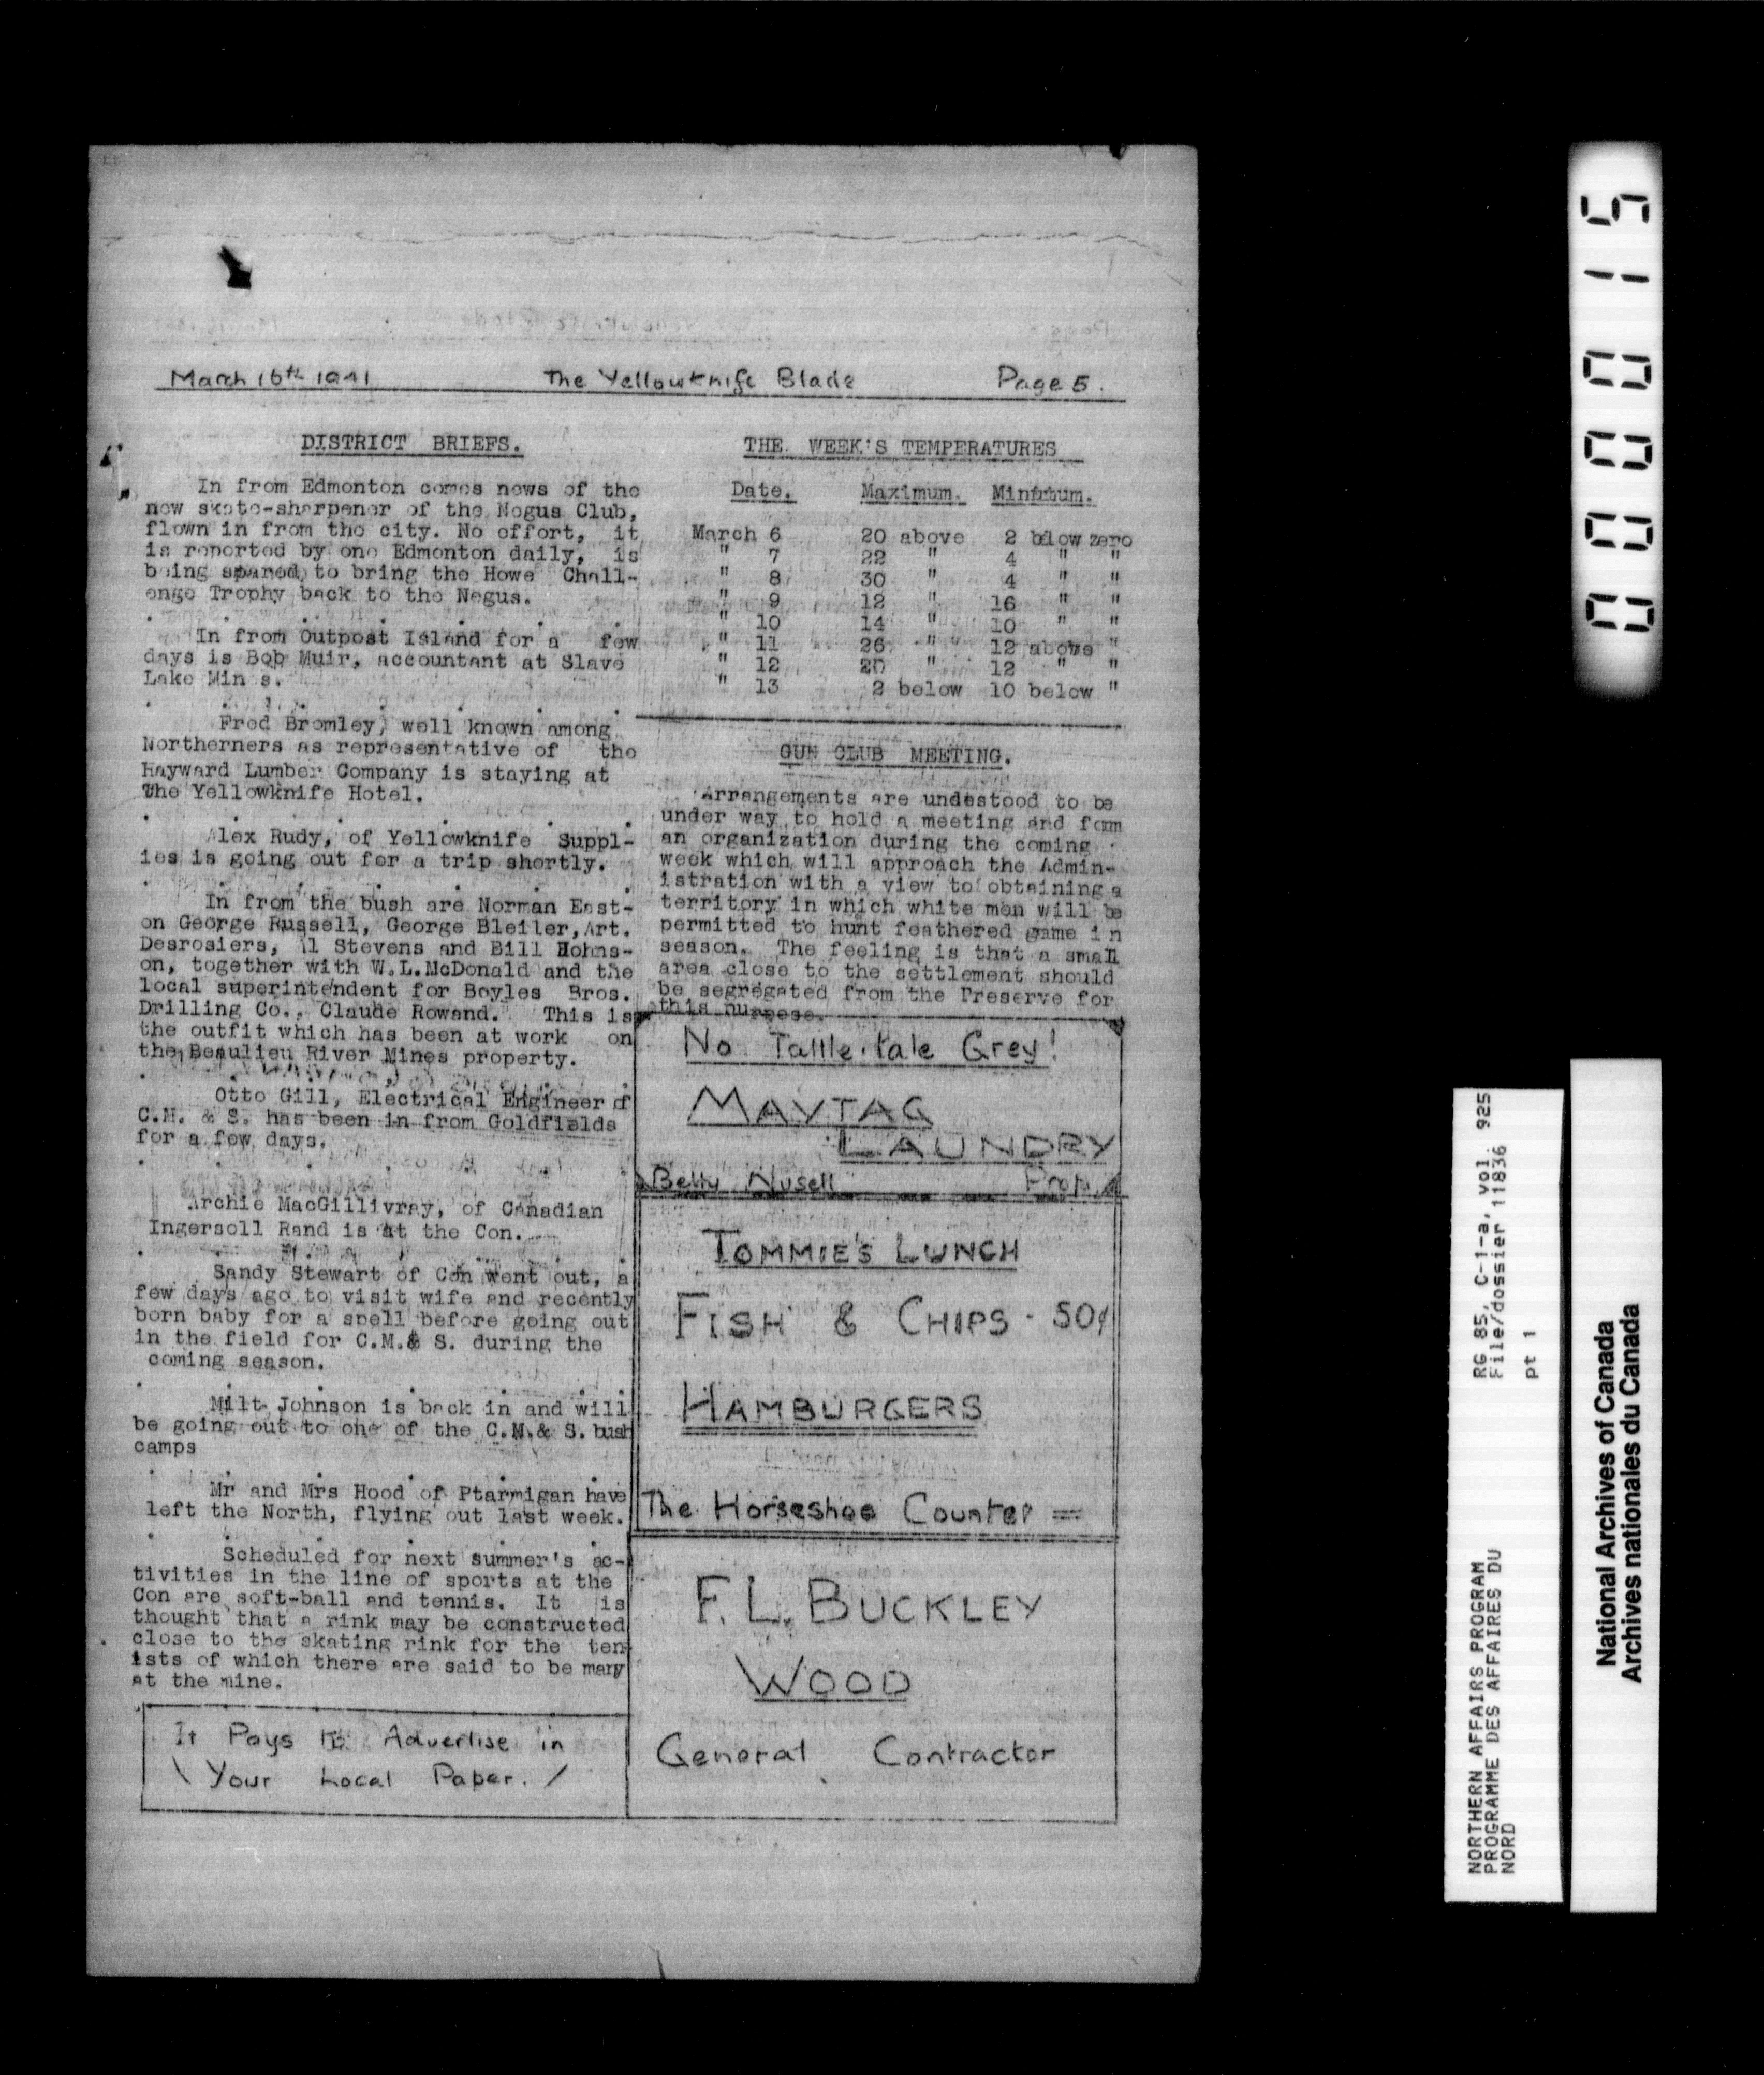 March 16th 1941 The Yellowknife Blade Page 5.
DISTRICT BRIEFS.
In from Edmonton comes news of the
new skate-sharpener of the Negus Club,
flown in from the city. No effort, it
is reported by one Edmonton daily, is
being spared, to bring the Howe Chall-
enge Trophy back to the Negus.
In from Outpost Island for a few
days is Bob Muir, accountant at Slave
Lake Min s.
Fred Bromley, well known among
Northerners as representative of the
Hayward Lumber Company is staying at
The Yellowknife Hotel.
Alex Rudy, of Yellowknife Suppl-
ies is going out for a trip shortly.
In from the bush are Norman East-
on George Russell, George Bleiler, Art.
Desrosiers, Al Stevens and Bill Hohns-
on, together with W.L.McDonald and the
local superintendent for Boyles Bros.
Drilling Co., Claude Rowand. This is
the outfit which has been at work on
the Beaulieu River Mines property.
Otto Gill, Electrical Engineer of
C.M. & S. has been in from Goldfields
for a few days.
Archie MacGillivray, of Canadian
Ingersoll Rand is at the Con.
Sandy Stewart of Con went out, a
few days ago to visit wife and recently
born baby for a spell before going out
in the field for C.M.& S. during the
coming season.
Milt Johnson is back in and will
be going out to one of the C.M.& S. bush
camps
Mr and Mrs Hood of Ptarmigan have
left the North, flying out last week.
Scheduled for next summer's ac-
tivities in the line of sports at the
Con are soft-ball and tennis. It is
thought that a rink may be constructed
close to the skating rink for the ten-
ists of which there are said to be many
at the mine.
It Pays to Advertise in
\ Your Local Paper. /
THE WEEK'S TEMPERATURES
Date. Maximum. Minimum.
March 6 20 above 2 below zero
" 7 22 " 4 " "
" 8 30 " 4 " "
" 9 12 " 16 " "
" 10 14 " 10 " "
" 11 26 " " 12 above "
" 12 20 " 12 " "
" 13 2 below 10 below "
GUN CLUB MEETING.
Arrangements are undestood to be
under way to hold a meeting and form
an organization during the coming
week which will approach the Admin-
istration with a view to obtaining a
territory in which white men will be
permitted to hunt feathered game in
season. The feeling is that a small
area close to the settlement should
be segregated from the Preserve for
this purpose.
No Tattle-tale Grey!
MAYTAG
LAUNDRY
Betty Nusell Prop.
TOMMIE'S LUNCH
FISH & CHIPS - 50¢
HAMBURGERS
The Horseshoe Counter =
F.L. BUCKLEY
WOOD
General Contractor
000015
RG 85, C-1-a, vol. 925
File/dossier 11836
pt 1
NORTHERN AFFAIRS PROGRAM
PROGRAMME DES AFFAIRES DU
NORD
National Archives of Canada
Archives nationales du Canada